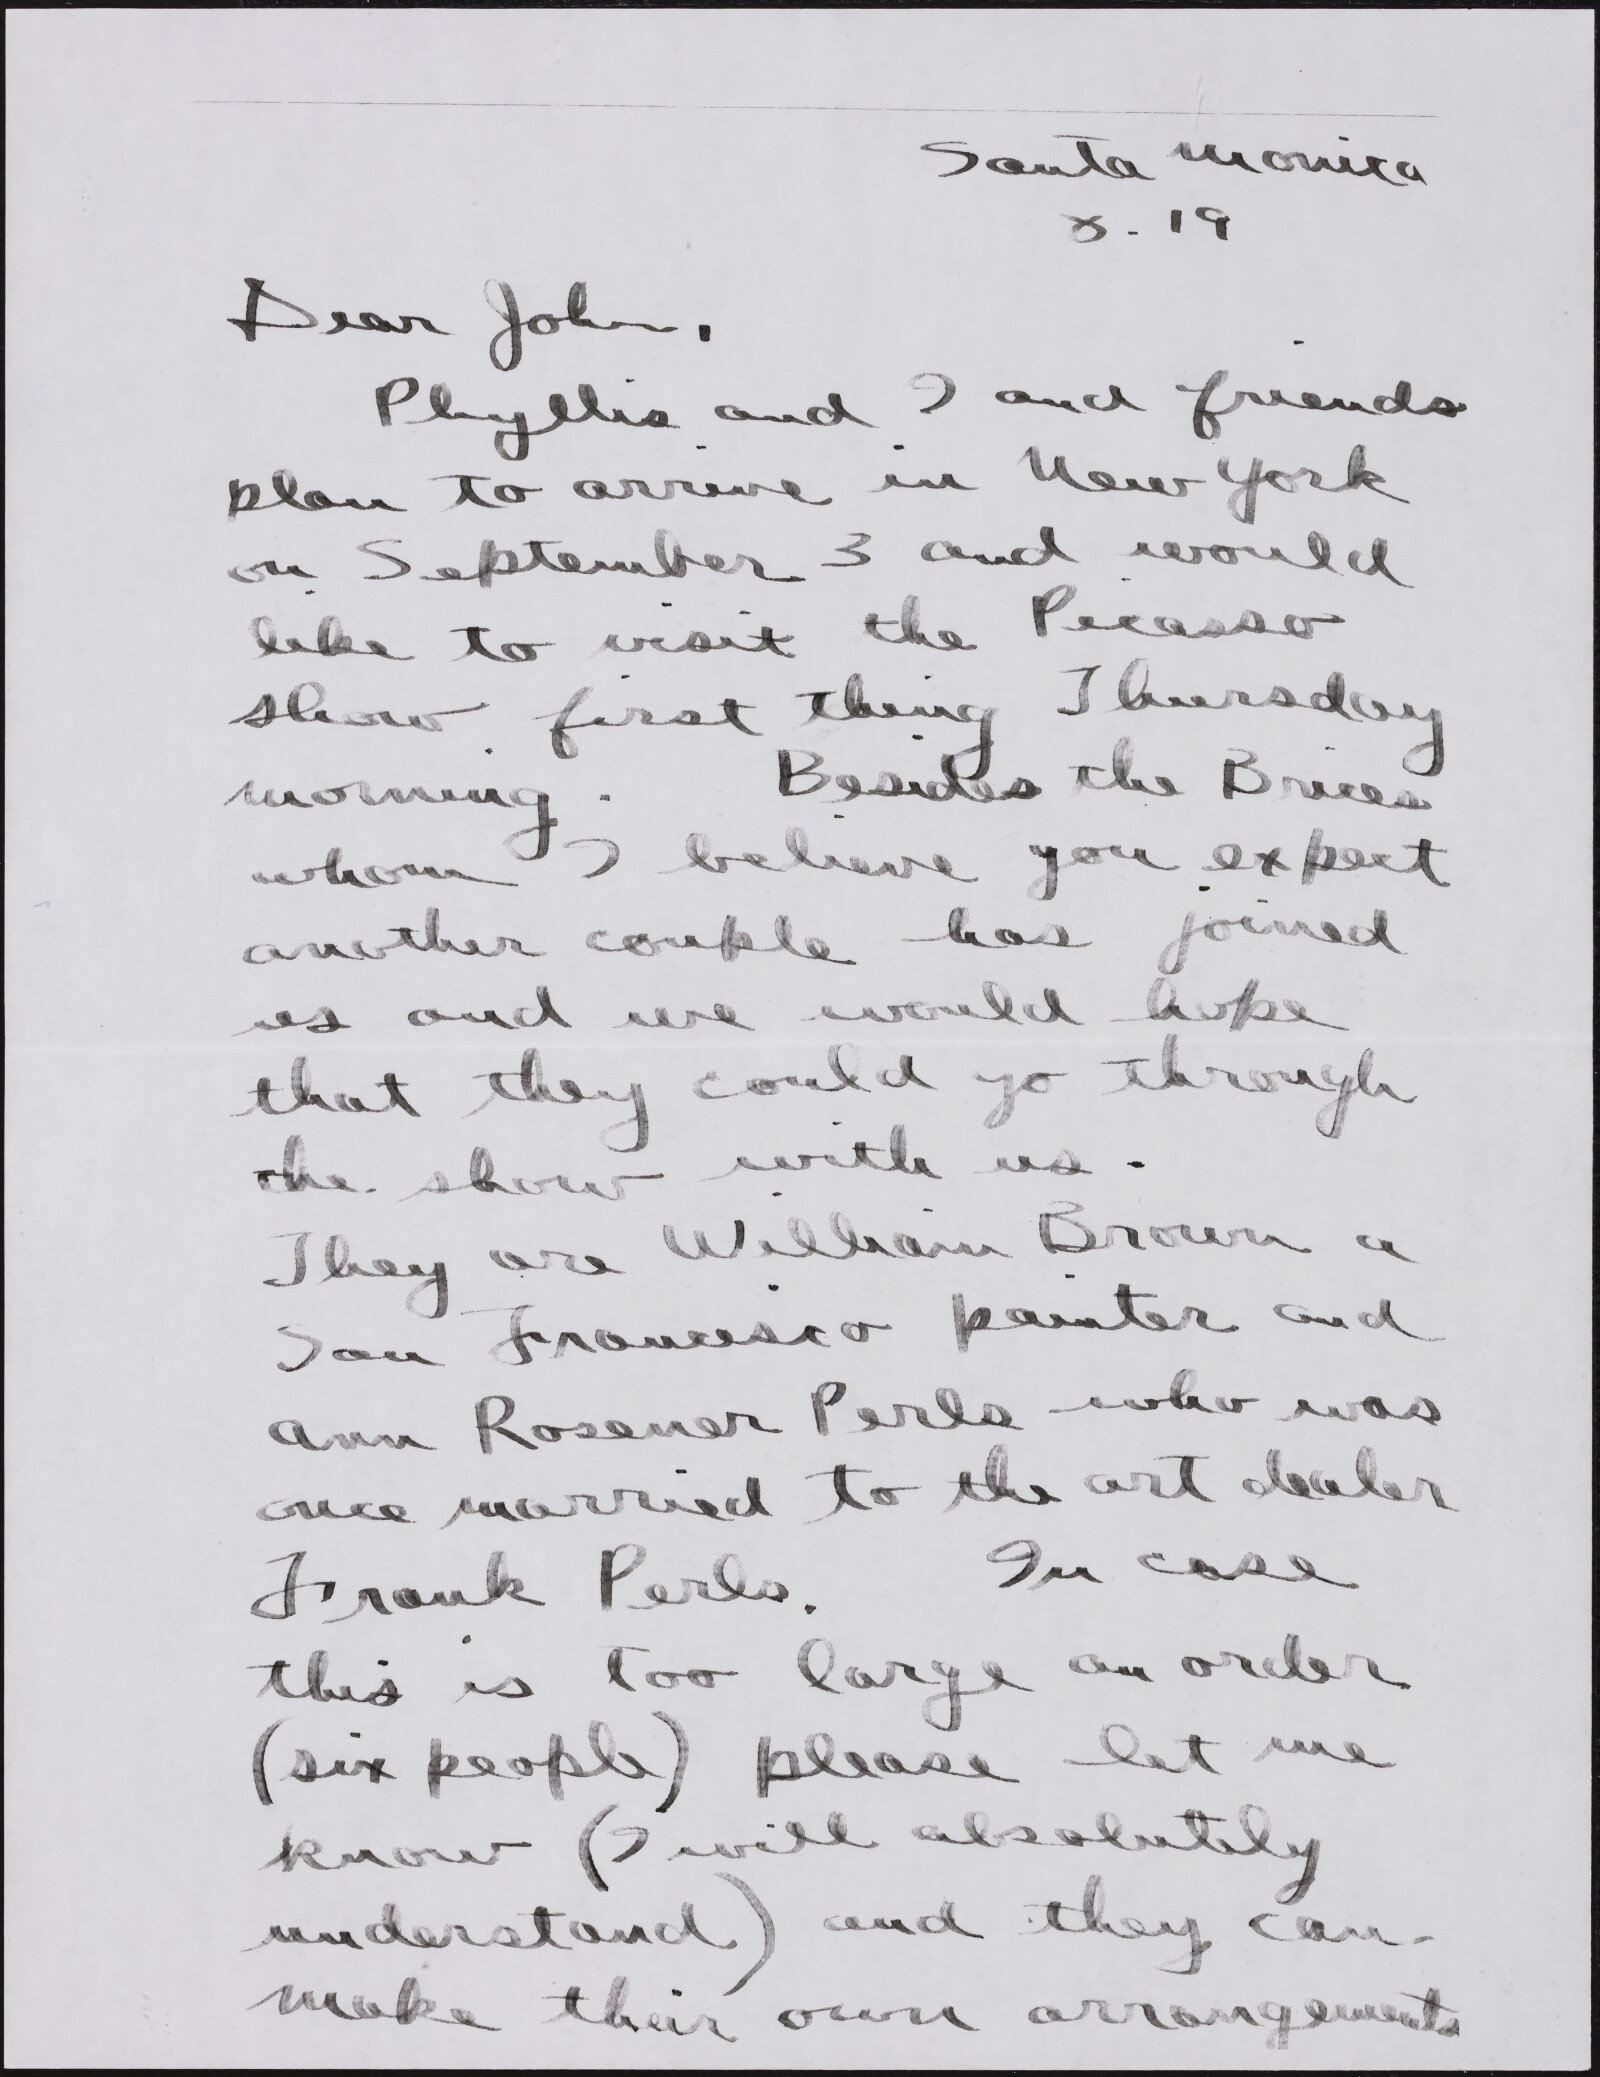 Santa Monica
8. 19
Dear John,
Phyllis and I and friends
plan to arrive in New York
on September 3 and would
like to visit the Picasso
show first thing Thursday
morning. Besides the Brices
whom I believe you expect
another couple has joined
us and we would hope
that they could go through
the show with us.
They are William Brown a
San Francisco painter and
Ann Rosener Perls who was
once married to the art dealer
Frank Perls. In case
this is too large an order
(six people) please let me
know (I will absolutely
understand) and they can
make their own arrangements